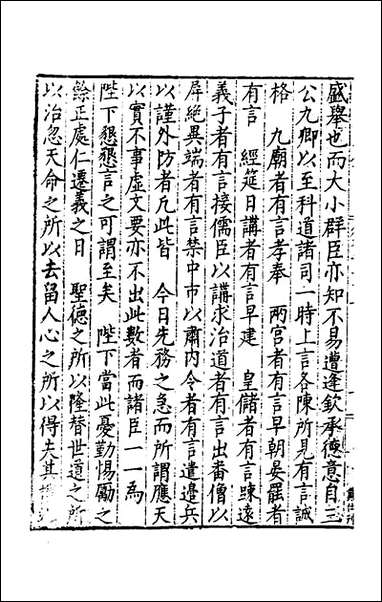 盛舉也而大小群臣亦知不易遭逢欽承德意自三
公九卿以至科道諸司一時上言各陳所見有言誠
格　九廟者有言孝奉　兩宮者有言早朝晏罷者
有言　經筵日講者有言早建　皇儲者有言踈遠
義子者有言接儒臣以講求治道者有言出番僧以
屏絕異端者有言禁中市以肅內令者有言遣邊兵
以謹外防者凡此皆　今日先務之急而所謂應天
以實不事虛文要亦不出此數者而諸臣一一爲
陛下懇懇言之可謂至矣　陛下當此憂勤惕勵之
餘正處仁遷義之日　聖德之所以隆替世道之所
以治忽天命之所以去留人心之所以得失其機